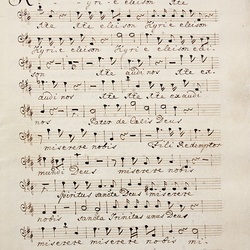 Kyrie eleison Xte
eleison Kyrie eleison Kyrie elei-
son Xte Xte audi nos Xte ex
audi nos Xte Xte exaudi
nos Pater de Calis Deus
miserere nobis Fili Redemptor
mundi Deus miserere nobis
Spiritus sancte Deus miserere
nobis Sancta Trinitas unus Deus
miserere miserere nobis mi-